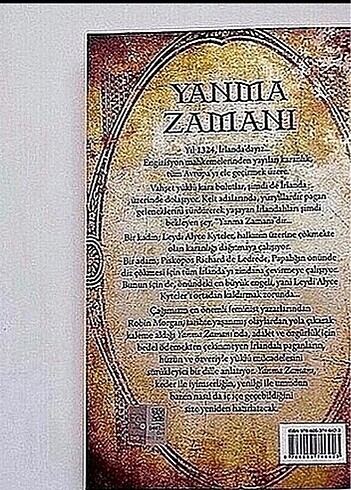 YANMA
ZAMANI
Yıl 1324, İrlanda'dayız...
Engizisyon mahkemelerinden yayılan karanlık,
tüm Avrupa'yı ele geçirmek üzere.
Vahşet yüklü kara bulutlar, şimdi de İrlanda
üzerinde dolaşıyor. Kelt adalarında, yüzyıllardır pagan
geleneklerini sürdürerek yaşayan İrlandalıları şimdi
bekleyen şey, "Yanma Zamanı"dır...
Bir kadın, Leydi Alyce Kyteler, halkının üzerine çökmekte
olan karanlığı dağıtmaya çalışıyor.
Bir adam, Piskopos Richard de Ledrede, Papalığın önünde
diz çökmesi için tüm İrlanda'yı zindana çevirmeye çalışıyor.
Bunun için de, önündeki en büyük engeli, yani Leydi Alyce
Kyteler'i ortadan kaldırmak zorunda...
Çağımızın en önemli feminist yazarlarından
Robin Morgan, tarihte yaşanmış olaylardan yola çıkarak
kaleme aldığı Yanma Zamanı'nda, adalet ve özgürlük için
bedel ödemekten çekinmeyen İrlandalı paganların,
hüzün ve özveriyle yüklü mücadelesini
sürükleyici bir dille anlatıyor. Yanma Zamanı,
keder ile iyimserliğin, yenilgi ile umudun
bazen nasıl da iç içe geçebildiğini
size yeniden hatırlatacak.